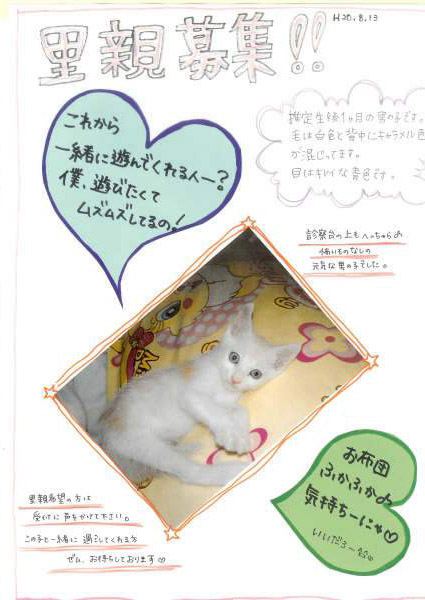 H20.8.13
里親募集!!
これから
一緒に遊んでくれる人ー?
僕、遊びたくて
ムズムズしてるの!
推定生後1ヶ月の男の子です。
毛は白色と背中にキャラメル色
が混じってます。
目はキレイな青色です。
診察台の上もへっちゃら♪
怖いものなしの
元気な男の子でした。
お布団
ふかふか♪
気持ちーにゃ♡
いいだろー
里親希望の方は
受付に声をかけて下さい。
この子と一緒に過ごしてくれる方
ぜひ、お待ちしております♡